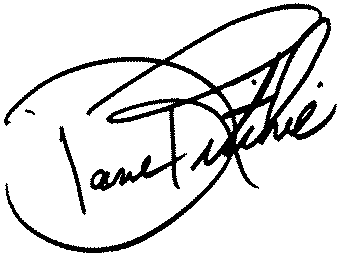 Jane Ritchie